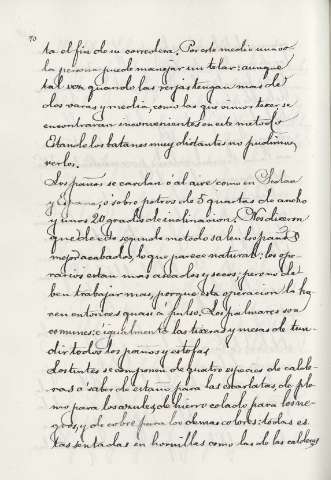 70
ta el fin de su corredera. Por este medio una so
la persona puede manejar un telar: aunque
tal vez quando las rexas tengan mas de
dos varas y media, como las que vimos texer se
encontraran inconvenientes en este metodo.
Estando los batanes muy distantes no pudimos
verlos.
Los paños se cardan ó al aire como en Sedan
y España, o sobre potros de 5 quartas de ancho
y unos 20 grados de inclinacion. Nos dixeron
que de este segundo metodo salen los paños
mejor acabados, lo que parece natural: los ope-
rarios estan mas aseados y secos: pero no de-
ben trabajar mas, porque esta operacion la ha-
cen entonces quasi á pulso. Los palmares son
comunes: é igualmente las tixeras y mesas de tun-
dir todos los paños y estofas.
Los tintes se componen de quatro especies de calde-
ras á saber de estaño para las escarlatas, de plo-
mo para los azules, de hierro colado para los ne-
gros, y de cobre para los demas colores: todas es-
tas sentadas en hornillas como las de las calderas